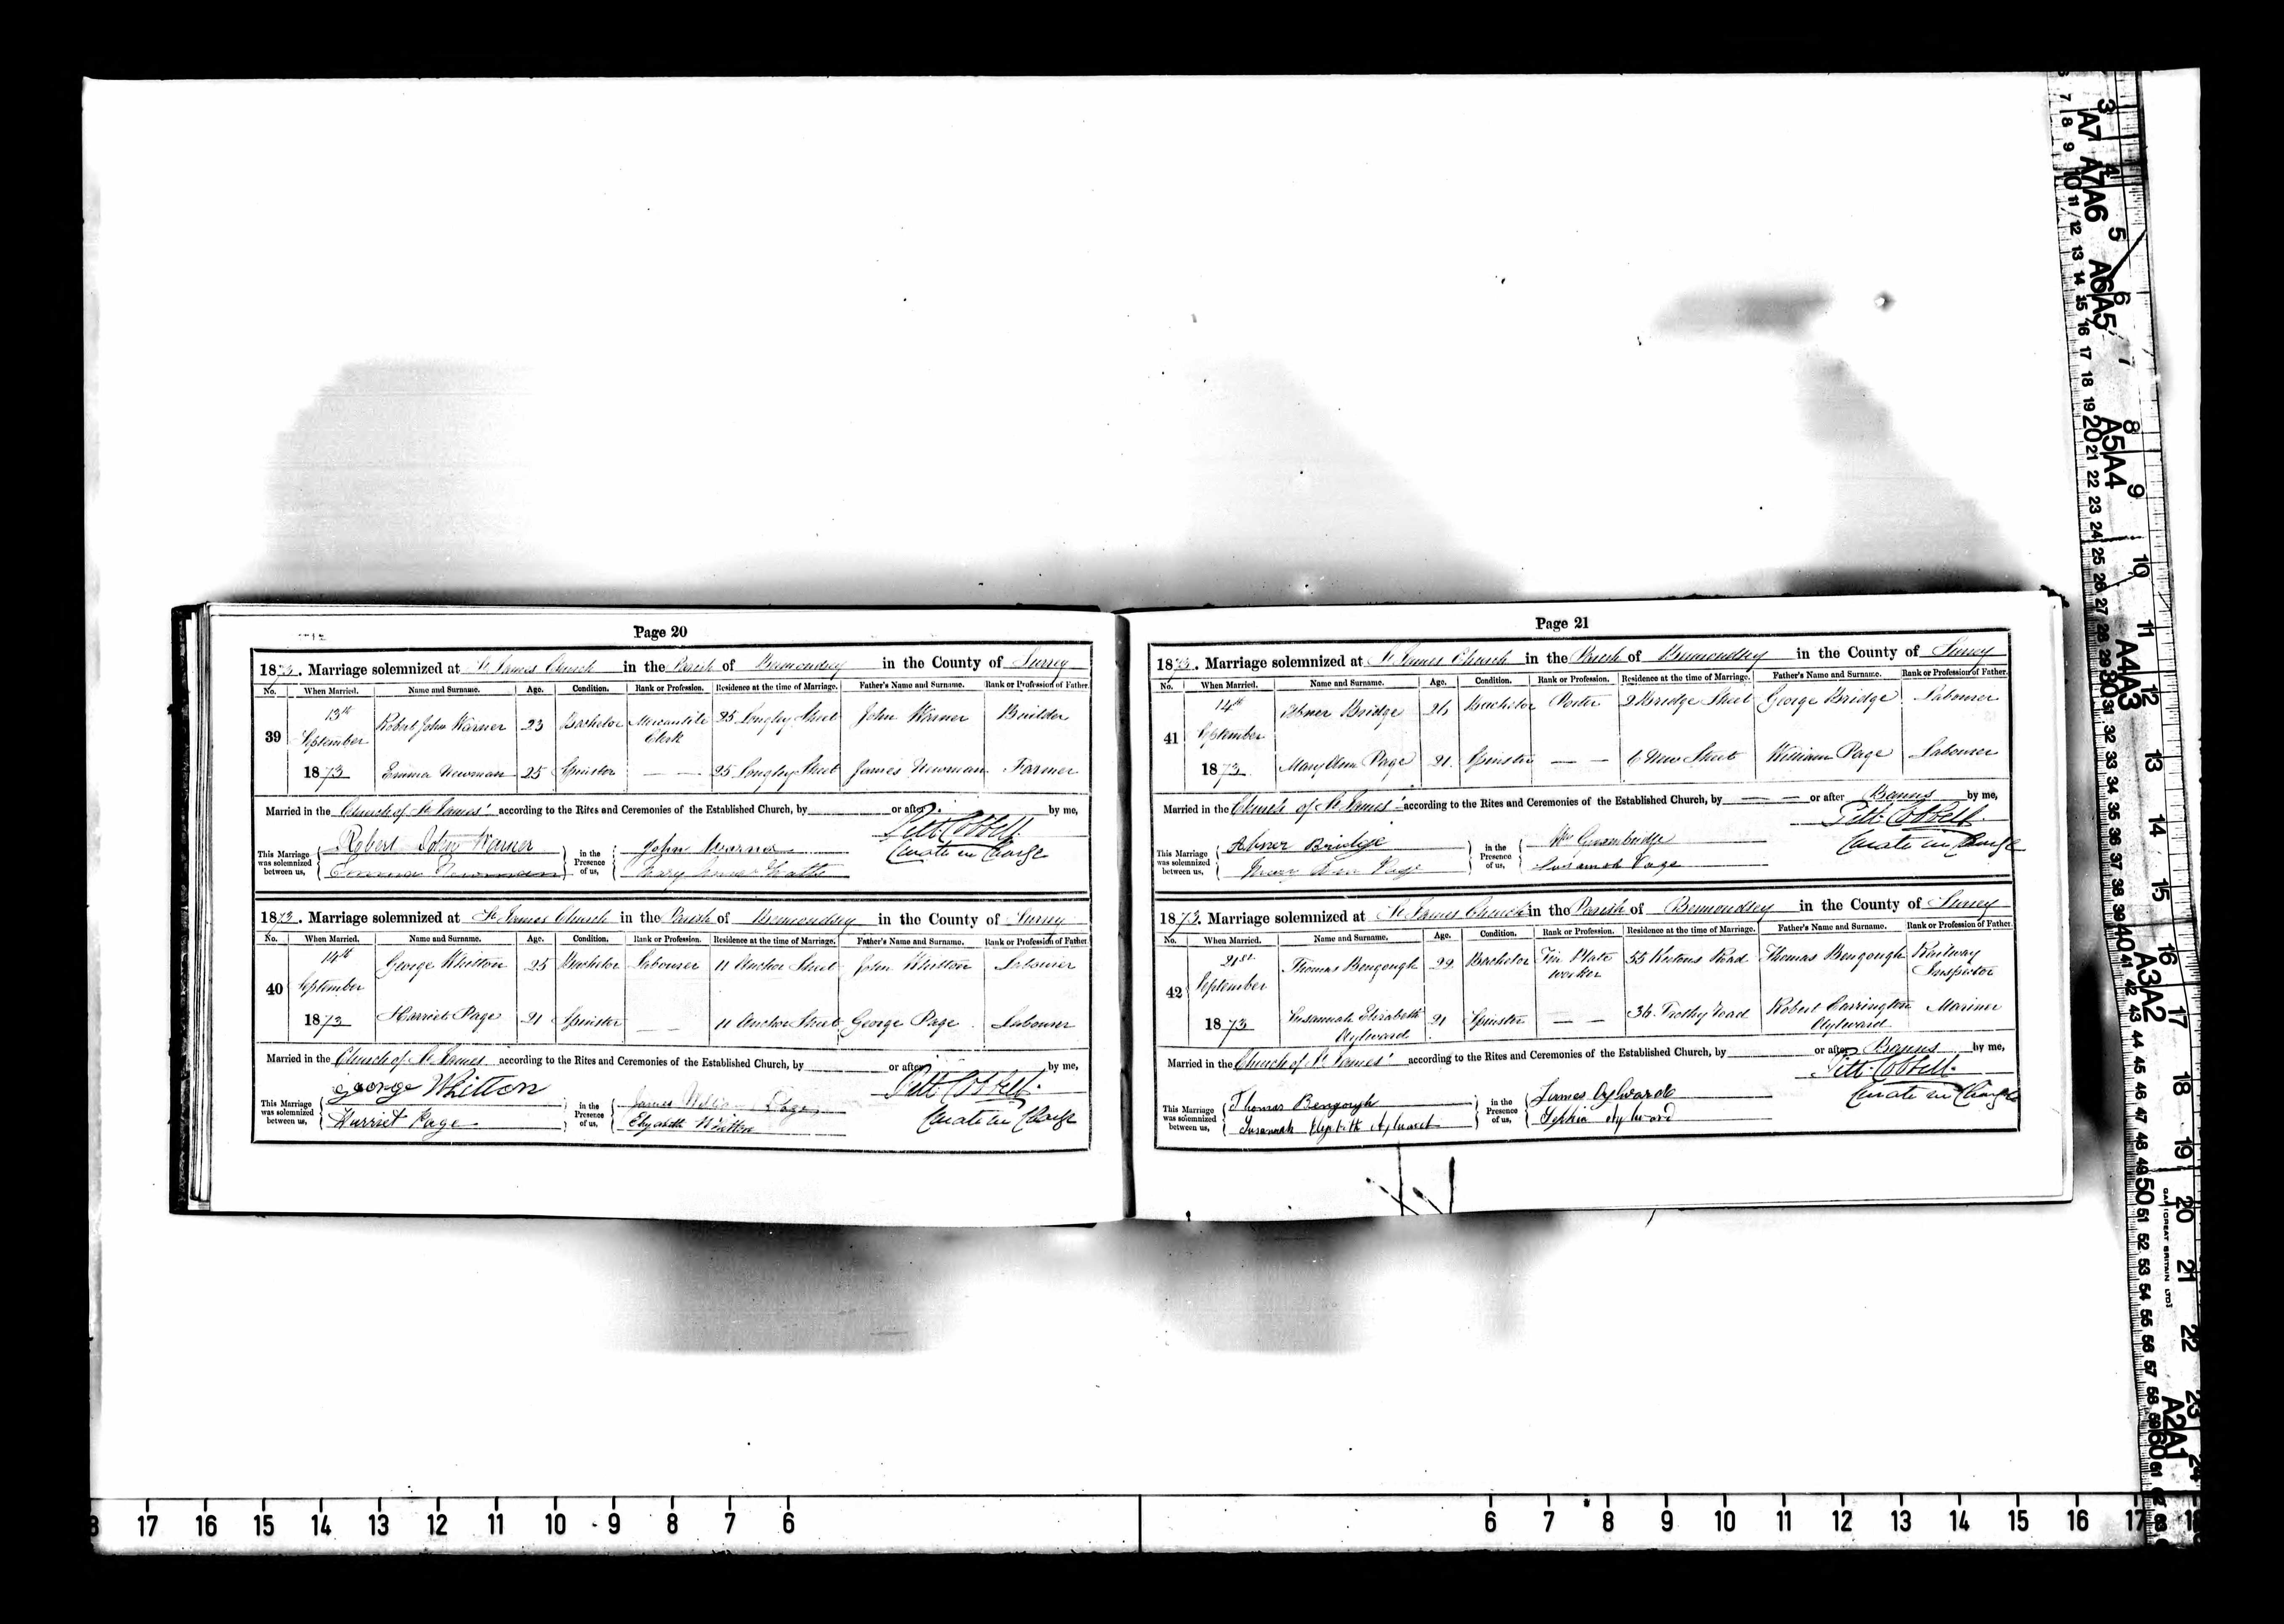 Page 20
1873. Marriage solemnized at St James Church in the Parish of Bermondsey in the County of Surrey
No. When Married. Name and Surname. Age. Condition. Rank or Profession. Residence at the time of Marriage. Father's Name and Surname. Rank or Profession of Father.
39 13th September 1873 Robert John Warner 23 Bachelor Mercantile Clerk 25 Longley Street John Warner Builder
Emma Newman 25 Spinster — — 25 Longley Street James Newman Farmer
Married in the Church of St James' according to the Rites and Ceremonies of the Established Church, by or after by me,
Robert John Warner John Warner Pitt Cobbett
This Marriage was solemnized between us, in the Presence of us, Curate in Charge
Emma Newman Mary
1873. Marriage solemnized at St James Church in the Parish of Bermondsey in the County of Surrey
No. When Married. Name and Surname. Age. Condition. Rank or Profession. Residence at the time of Marriage. Father's Name and Surname. Rank or Profession of Father.
40 14th September 1873 George Whitton 25 Bachelor Labourer 11 Anchor Street John Whitton Labourer
Harriet Page 21 Spinster — — 11 Anchor Street George Page Labourer
Married in the Church of St James according to the Rites and Ceremonies of the Established Church, by or after by me,
George Whitton James Page Pitt Cobbett
This Marriage was solemnized between us, in the Presence of us, Curate in Charge
Harriet Page Elizabeth Whitton
Page 21
1873. Marriage solemnized at St James Church in the Parish of Bermondsey in the County of Surrey
No. When Married. Name and Surname. Age. Condition. Rank or Profession. Residence at the time of Marriage. Father's Name and Surname. Rank or Profession of Father.
41 14th September 1873 Abner Bridge Bachelor Porter 2 Bridge Street George Bridge Labourer
Mary Ann Page 21 Spinster — — 6 New Street William Page Labourer
Married in the Church of St James according to the Rites and Ceremonies of the Established Church, by — — or after Banns by me,
Abner Bridge Wm Groombridge Pitt Cobbett
This Marriage was solemnized between us, in the Presence of us, Curate in Charge
Mary Ann Page Susannah Page
1873. Marriage solemnized at St James Church in the Parish of Bermondsey in the County of Surrey
No. When Married. Name and Surname. Age. Condition. Rank or Profession. Residence at the time of Marriage. Father's Name and Surname. Rank or Profession of Father.
42 21st September 1873 Thomas Bengough 22 Bachelor Tin Plate worker 55 Keetons Road Thomas Bengough Railway Inspector
Susannah Elizabeth Aylward 21 Spinster — — 36 Road Robert Carrington Aylward Mariner
Married in the Church of St James' according to the Rites and Ceremonies of the Established Church, by or after Banns by me,
Thomas Bengough James Aylward Pitt Cobbett
This Marriage was solemnized between us, in the Presence of us, Curate in Charge
Susannah Elizabeth Aylward Sophia Aylward